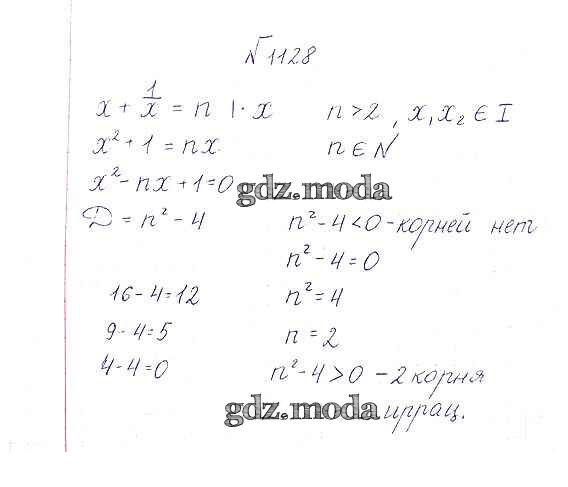 №1128
x + 1/x = n | · x n > 2, x₁x₂ ∈ I
x² + 1 = nx n ∈ N
x² - nx + 1 = 0
gdz.moda
D = n² - 4 n² - 4 < 0 - корней нет
n² - 4 = 0
16 - 4 = 12 n² = 4
9 - 4 = 5 n = 2
4 - 4 = 0 n² - 4 > 0 - 2 корня
gdz.moda иррац.